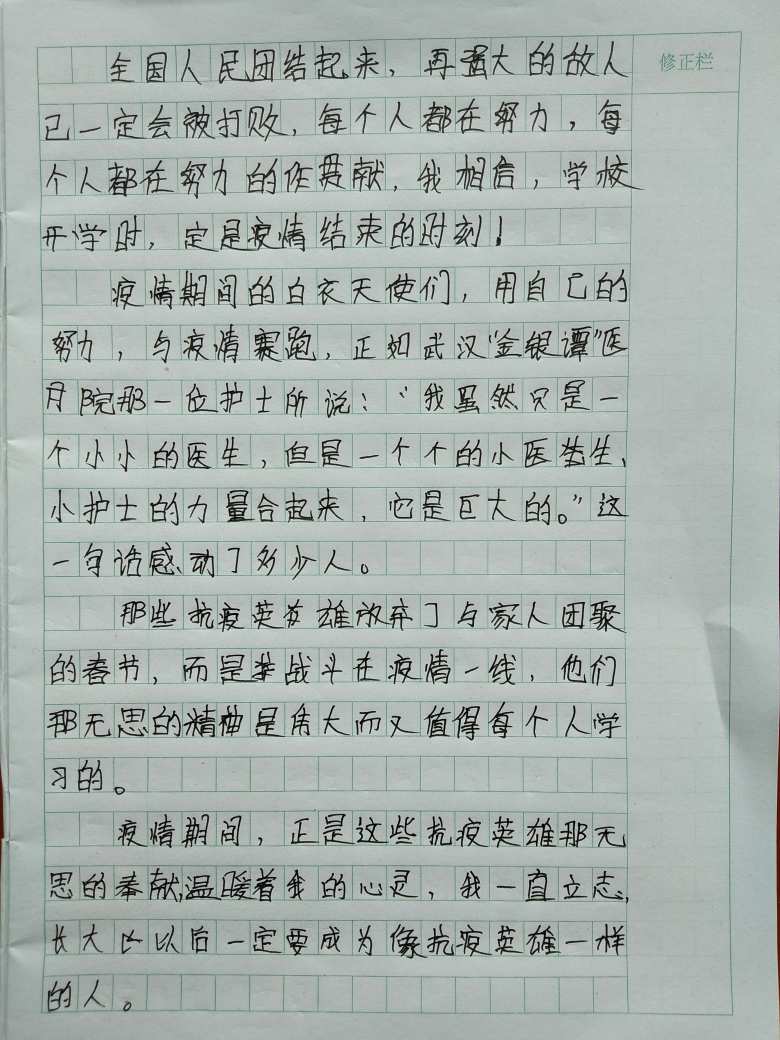 修正栏
全国人民团结起来，再强大的故人
己一定会被打败，每个人都在努力，每
个人都在努力的作贯献，我相信，学校
开学时，定是疫情结束的时刻！
疫情期间的白衣天使们，用自己的
努力，与疫情赛跑，正如武汉“金银谭”医
院那一位护士所说：“我虽然只是一
个小小的医生，但是一个个的小医生、
小护士的力量合起来，它是巨大的。”这
一句话感动了多少人。
那些抗疫英雄放弃了与家人团聚
的春节，而是战斗在疫情一线，他们
那无思的精神是伟大而又值得每个人学
习的。
疫情期间，正是这些抗疫英雄那无
思的奉献，温暖着我的心灵，我一直立志，
长大以后一定要成为像抗疫英雄一样
的人。